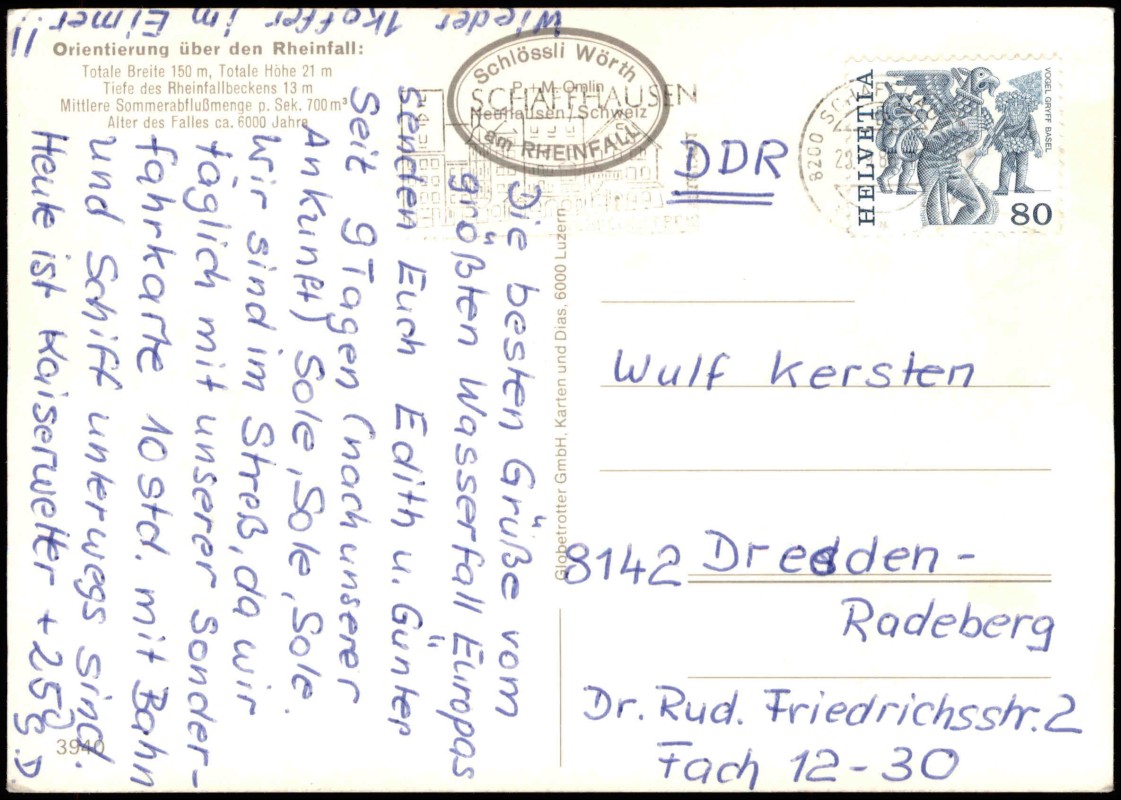 Orientierung über den Rheinfall:
Totale Breite 150 m, Totale Höhe 21 m
Tiefe des Rheinfallbeckens 13 m
Mittlere Sommerabflußmenge p. Sek. 700 m³
Alter des Falles ca. 6000 Jahre
Schlössli Wörth
P. u. M. Omlin
Neuhausen/Schweiz
am RHEINFALL
SCHAFFHAUSEN
8200 SCHAFF
HELVETIA
VOGEL GRYFF BASEL
80
Die besten Grüße vom
größten Wasserfall Europas
senden Euch Edith u. Günter
Seit 9 Tagen (nach unserer
Ankunft) Sole, Sole, Sole.
Wir sind im Streß, da wir
täglich mit unserer Sonder-
fahrkarte 10 Std. mit Bahn
und Schiff unterwegs sind.
Heute ist Kaiserwetter +25°
Wieder 1 Koffer im Eimer!!
DDR
Wulf Kersten
8142 Dresden-
Radeberg
Dr. Rud. Friedrichsstr. 2
Fach 12-30
Globetrotter GmbH, Karten und Dias, 6000 Luzern
3940